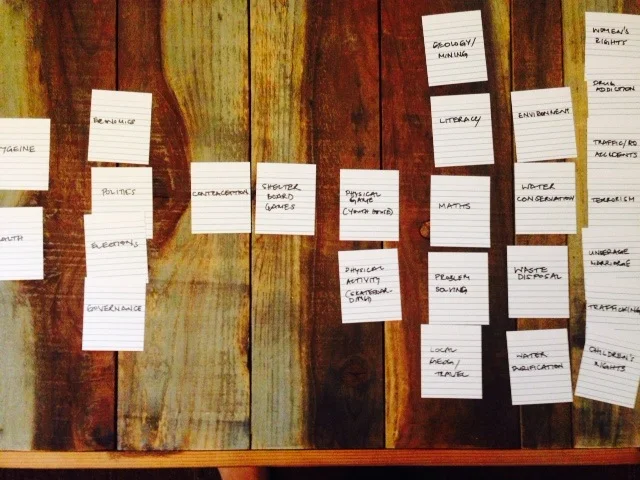 YGEINE
ALTH
ECONOMICS
POLITICS
ELECTIONS
GOVERNANCE
CONTRACEPTION
SHELTER
BOARD
GAMES
PHYSICAL
GAME
(YOUTH HOUSE)
PHYSICAL
ACTIVITY
(SKATEBOAR-
DING)
GEOLOGY/
MINING
LITERACY
MATHS
PROBLEM
SOLVING
LOCAL
GEOG/
TRAVEL
ENVIRONMENT
WATER
CONSERVATION
WASTE
DISPOSAL
WATER
PURIFICATION
WOMEN'S
RIGHTS
DRUG
ADDICTION
TRAFFIC/RD
ACCIDENTS
TERRORISM
UNDERAGE
MARRIAGE
TRAFFICKING
CHILDREN'S
RIGHTS